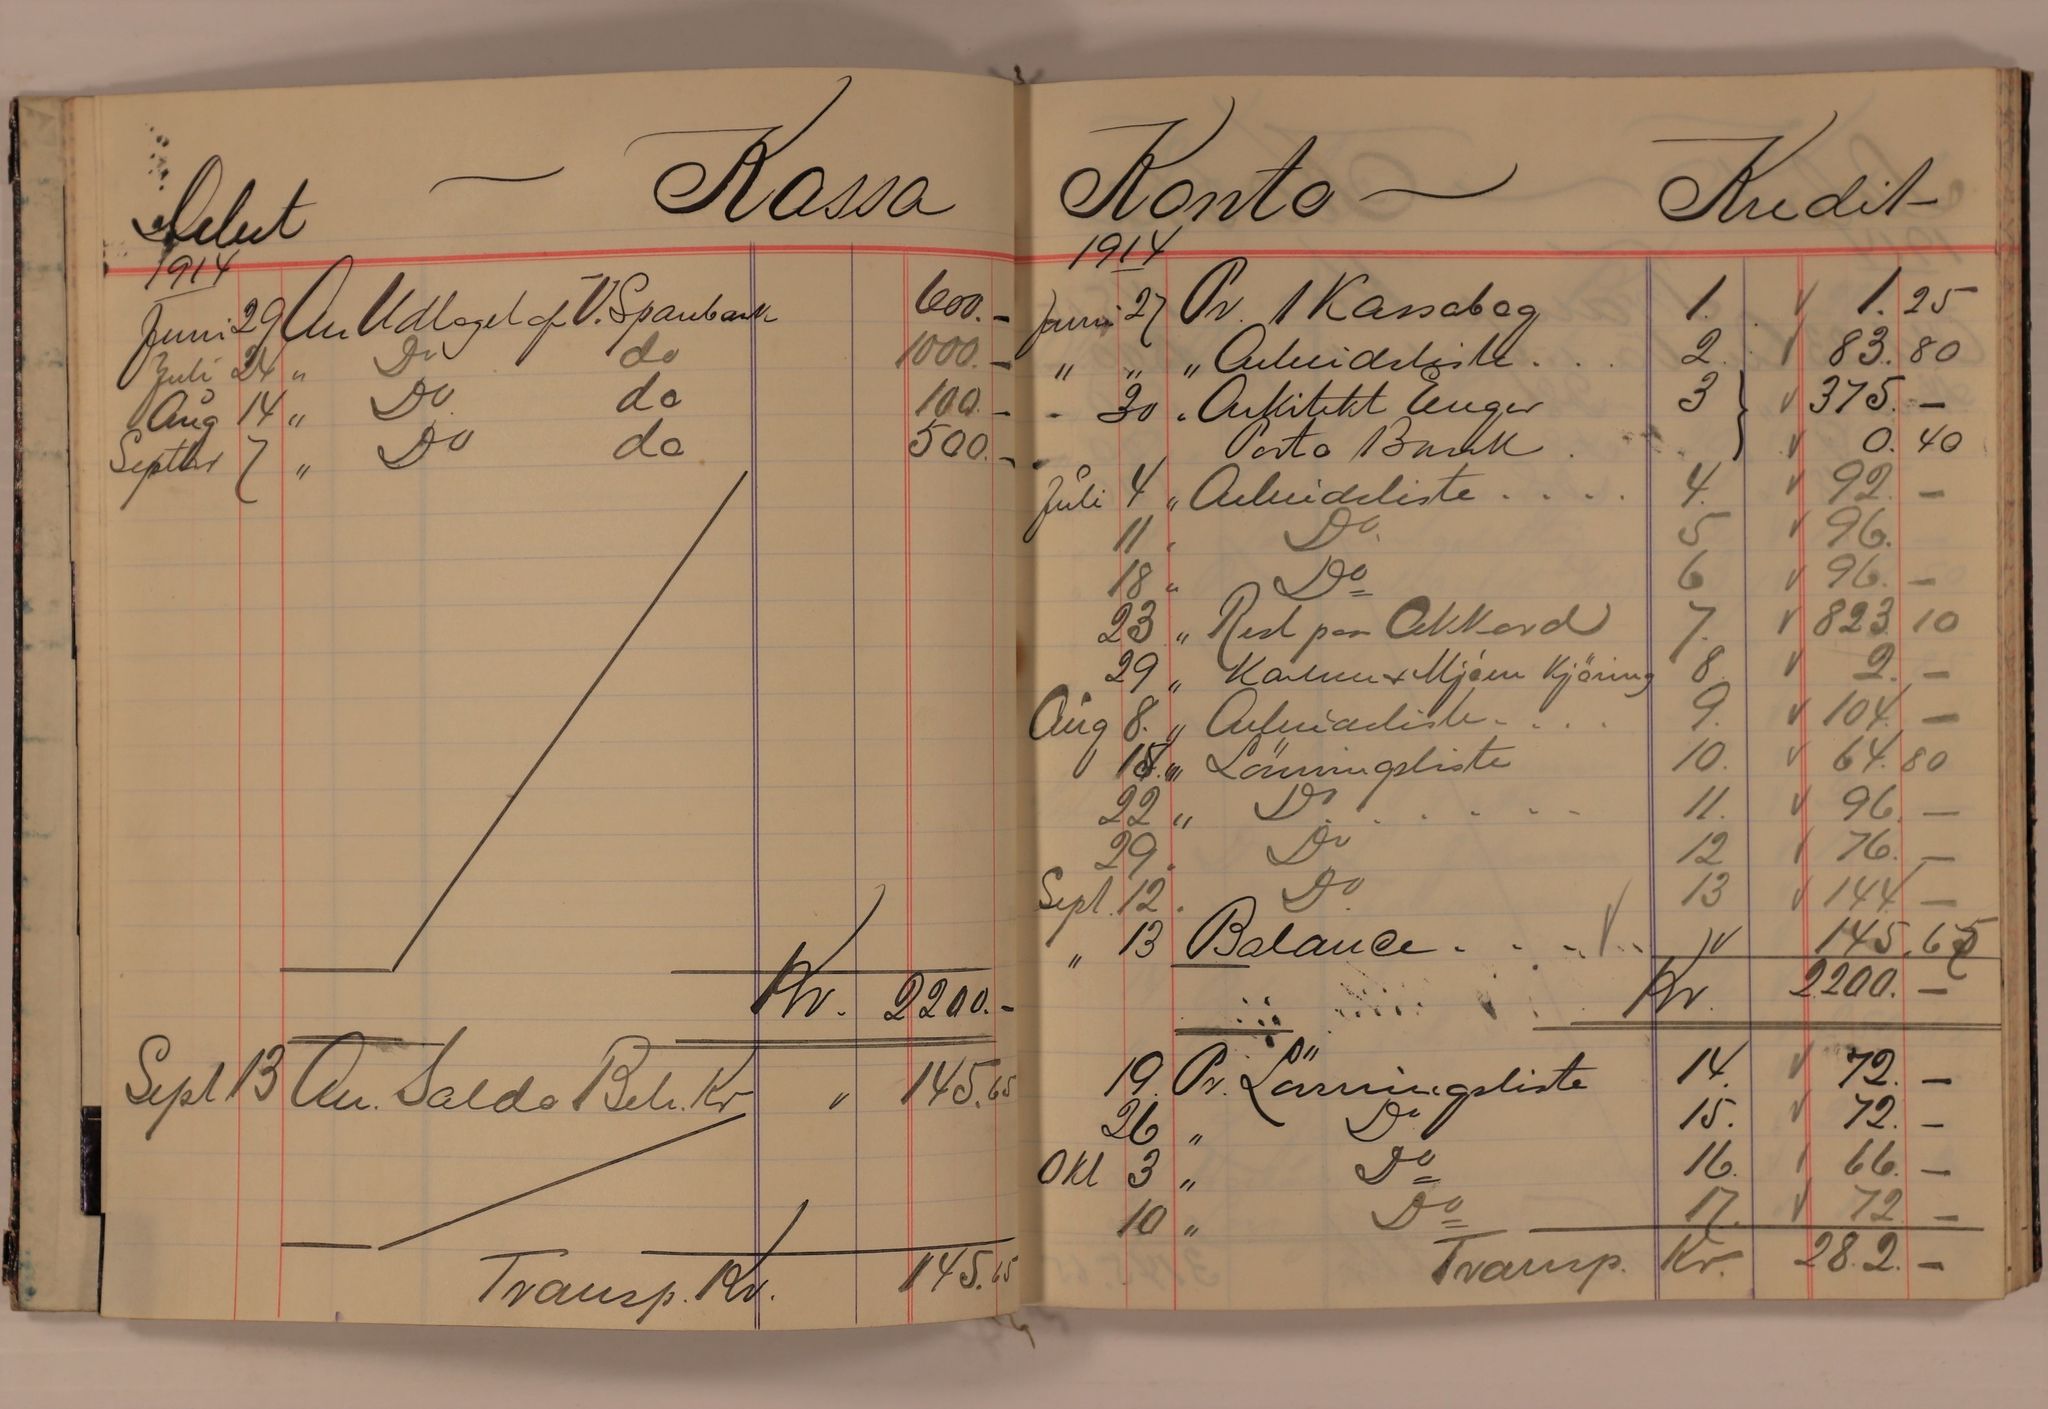 Debet — Kassa
1914
Juni 29 An Udtaget af V. Sparebank 600.-
Juli 24 " Do do 1000.-
Aug 14 " Do do 100.-
Septbr 7 " Do do 500.-
Kr. 2200.-
Sept 13 An Saldo Beh. Kr " 145.65
Transp. Kr. 145.65
Konto — Kredit
1914
Juni 27 Pr. 1 Kassabog 1. 1.25
" " " Arbeidsliste . . . 2. 83.80
- 30 " Arkitekt Enger 3 375.-
Porto Bank . 0.40
Juli 4 " Arbeidsliste . . . . 4. 92.-
11 . Do. 5 96.
18 " Do 6 96.-
23 " Rest paa Akkord 7. 823.10
29 " Mjöen Kjöring 8. 2.-
Aug 8. " Arbeidsliste . . . . 9. 104.-
15. " Lönningsliste 10. 64.80
22 " Do . . . . . 11. 96.-
29. Do 12 76.-
Sept. 12. Do 13 144.-
" 13 Balance . . . . 145.65
Kr. 2200.-
19. Pr. Lönningsliste 14. 72.-
26 " Do 15. 72.-
Okt 3 " Do 16. 66.-
10 " Do 17. 72.-
Transp. Kr. 282.-